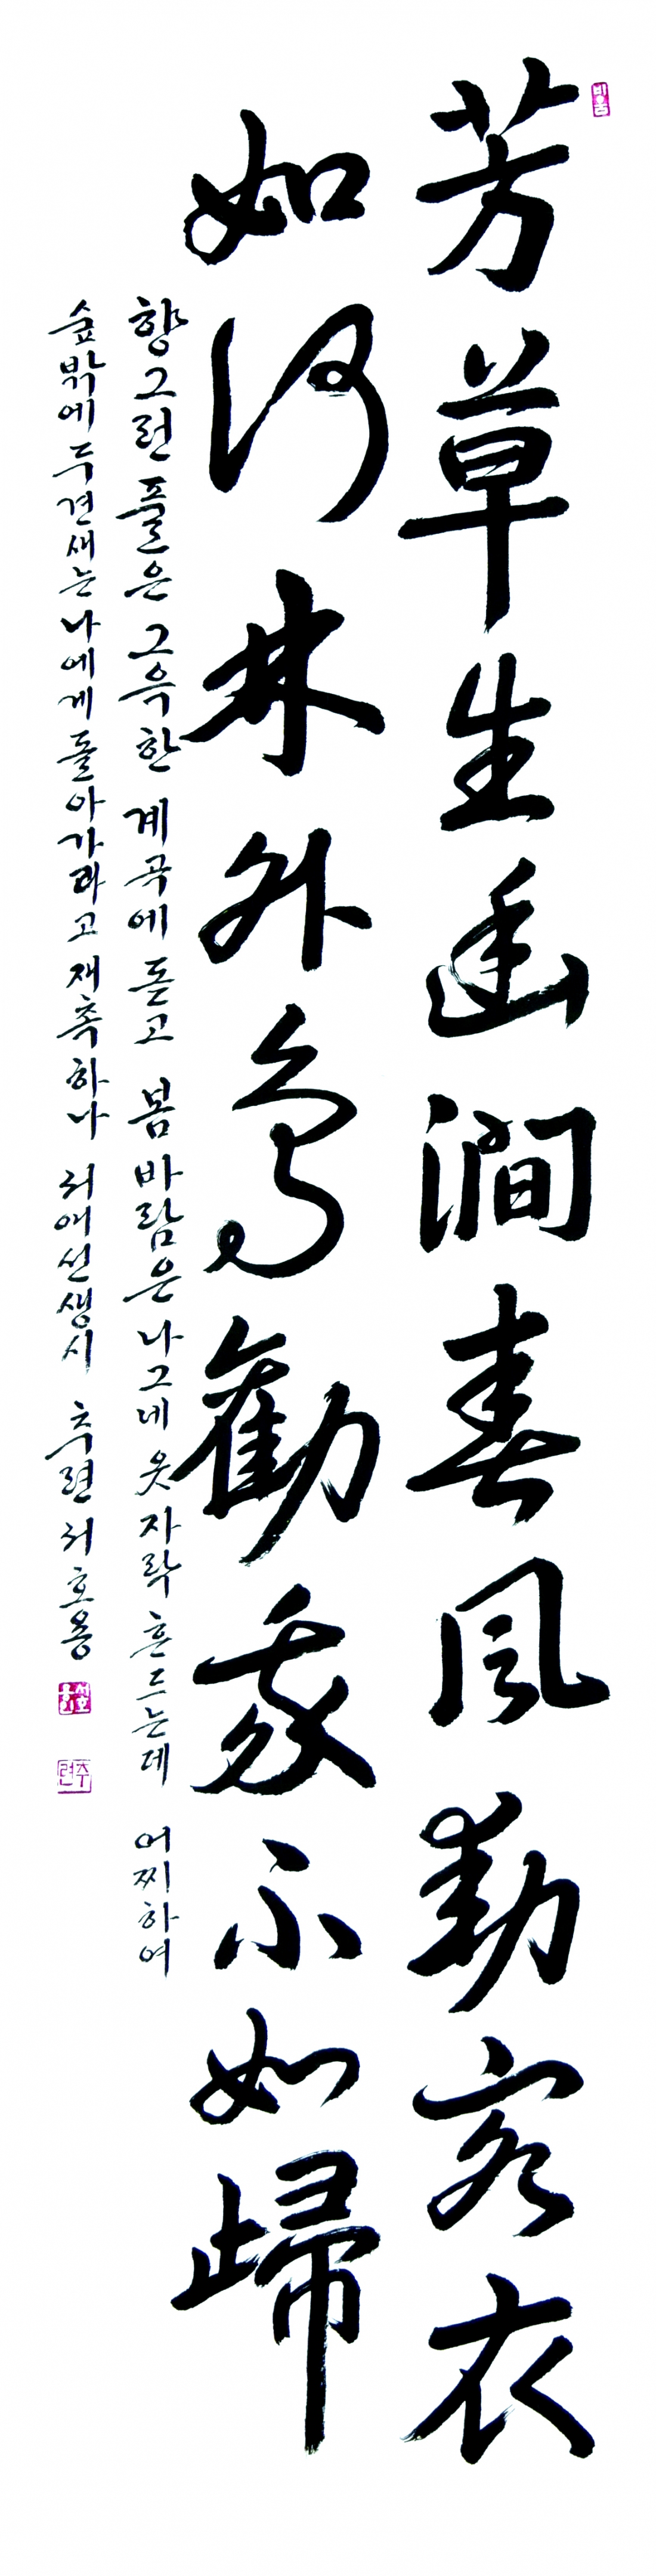 芳草生幽澗春風動客衣
如何林外鳥勸我不如歸
향그런 풀은 그윽한 계곡에 돋고 봄바람은 나그네 옷자락 흔드는데 어찌하여
숲밖에 두견새는 나에게 돌아가라고 재촉하나 서애선생시 추련 서호용
추련